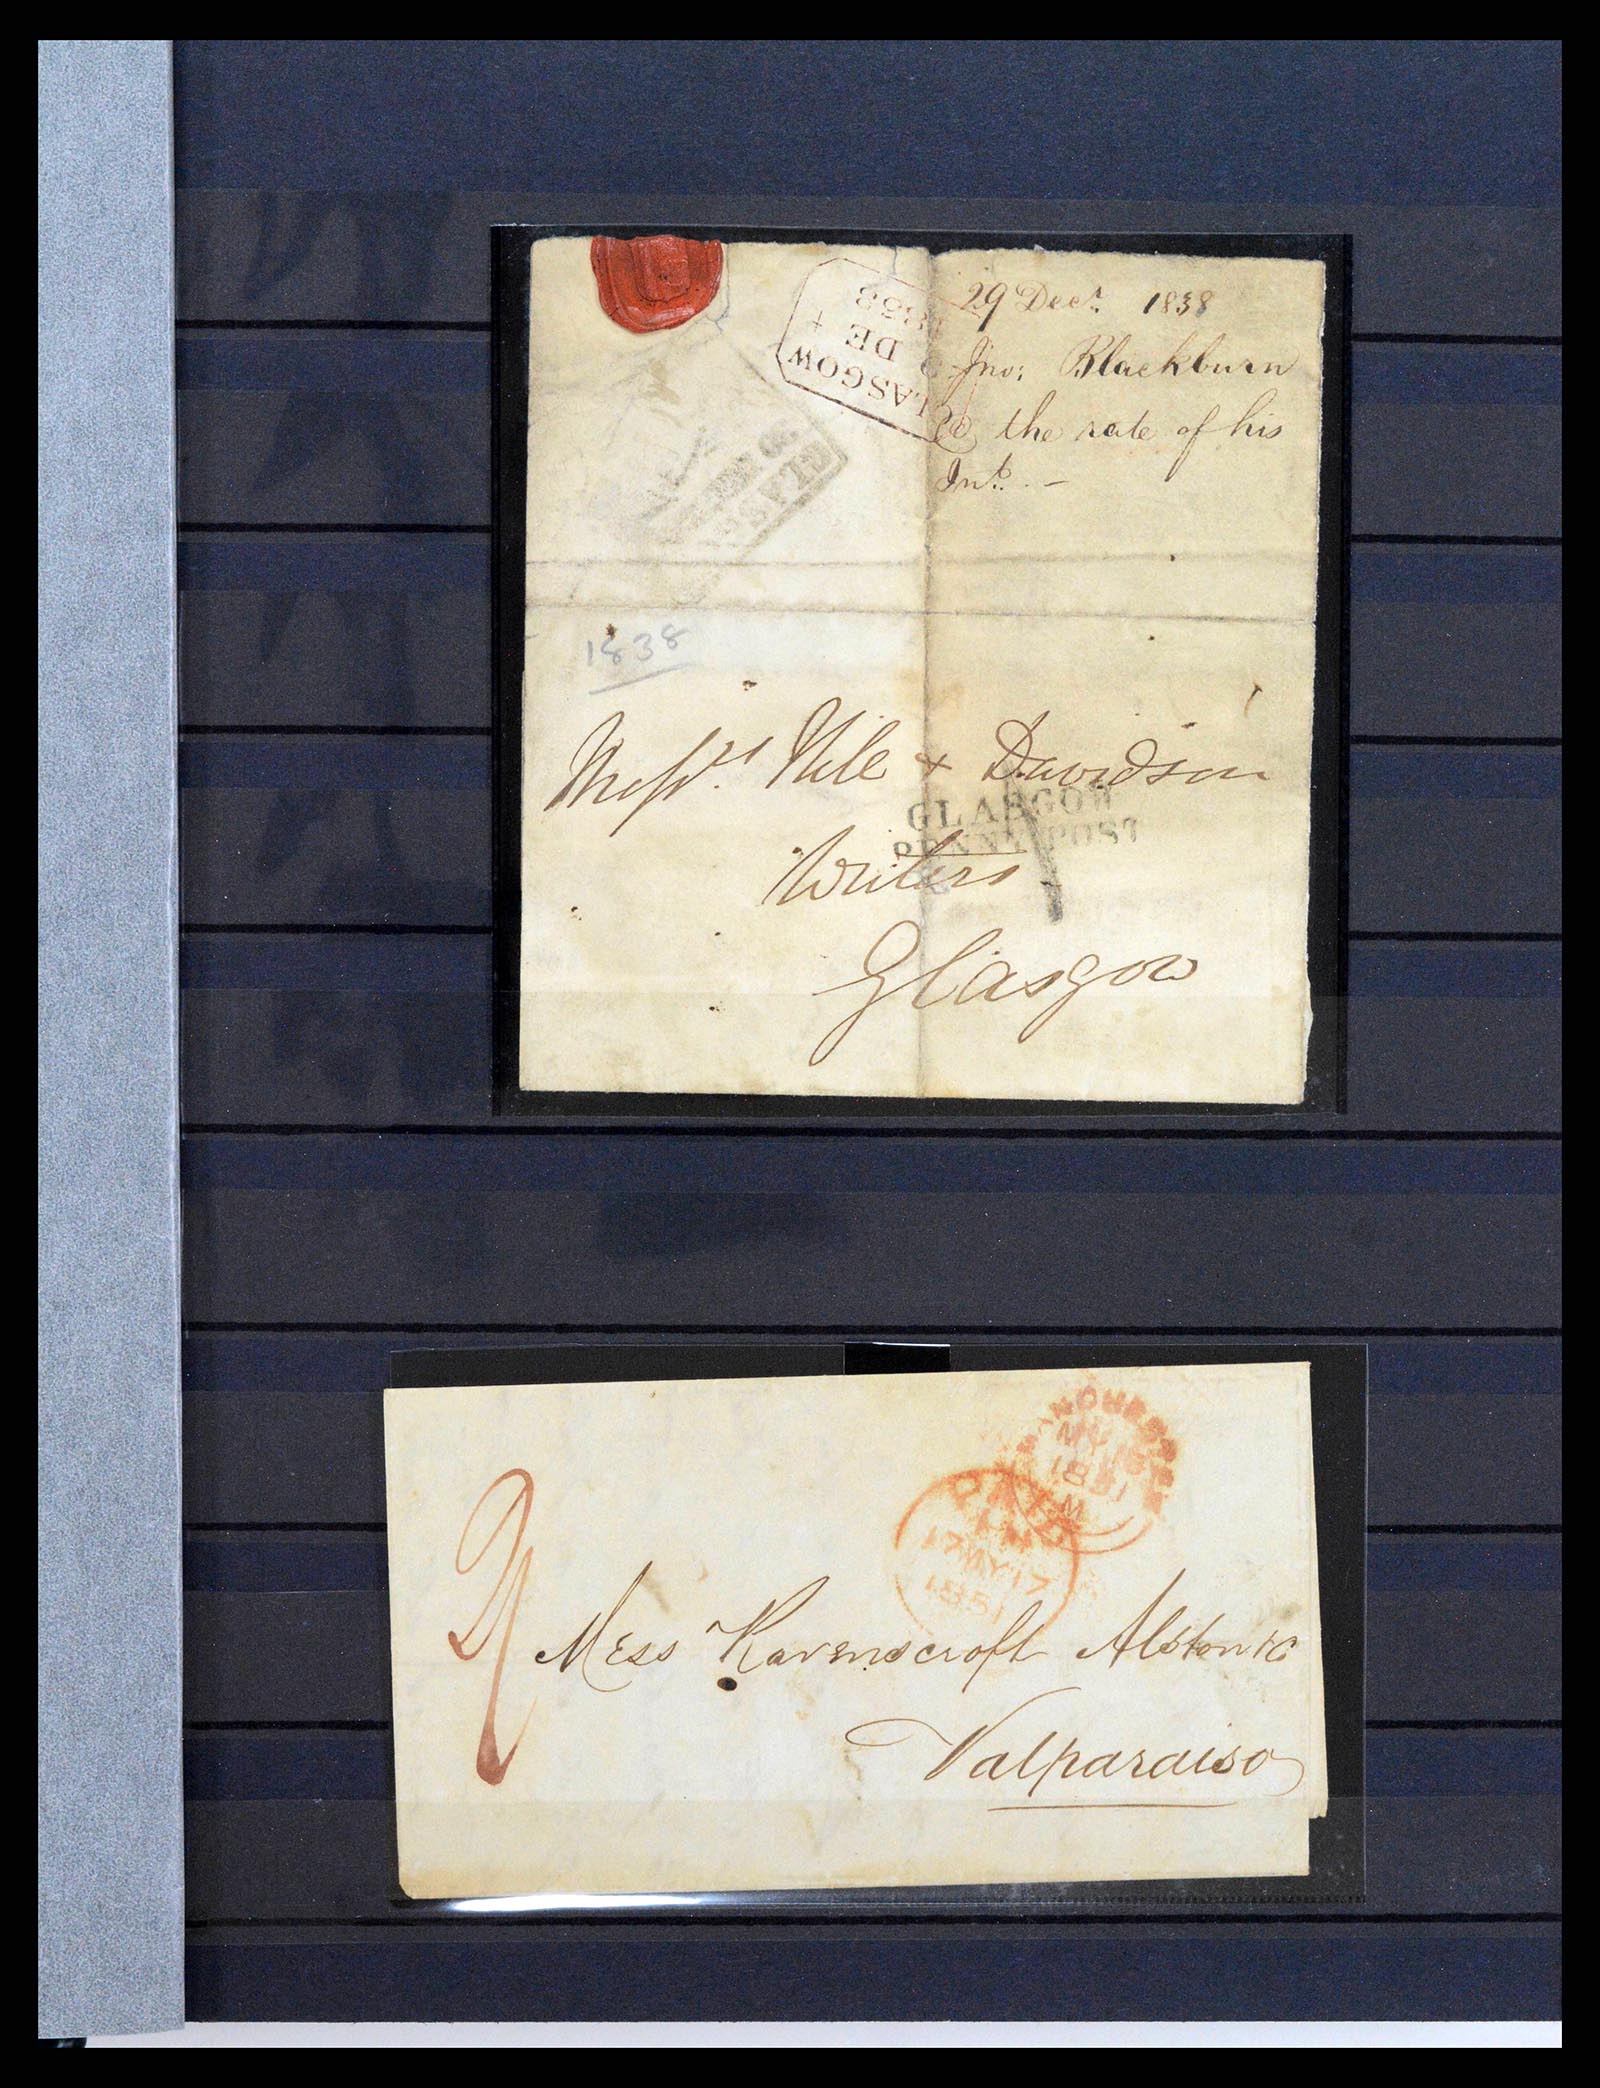 29 Decr. 1838
Jno: Blackburn
the rate of his
Int. -
GLASGOW
DE
1838
1838
Messrs. Nile + Davidson
GLASGOW
PENNY POST
Writers
Glasgow
MANCHESTER
MY 16
1851
M
PAID
17 MY 17
1851
2
Mess Ravenscroft Alston & C
Valparaiso